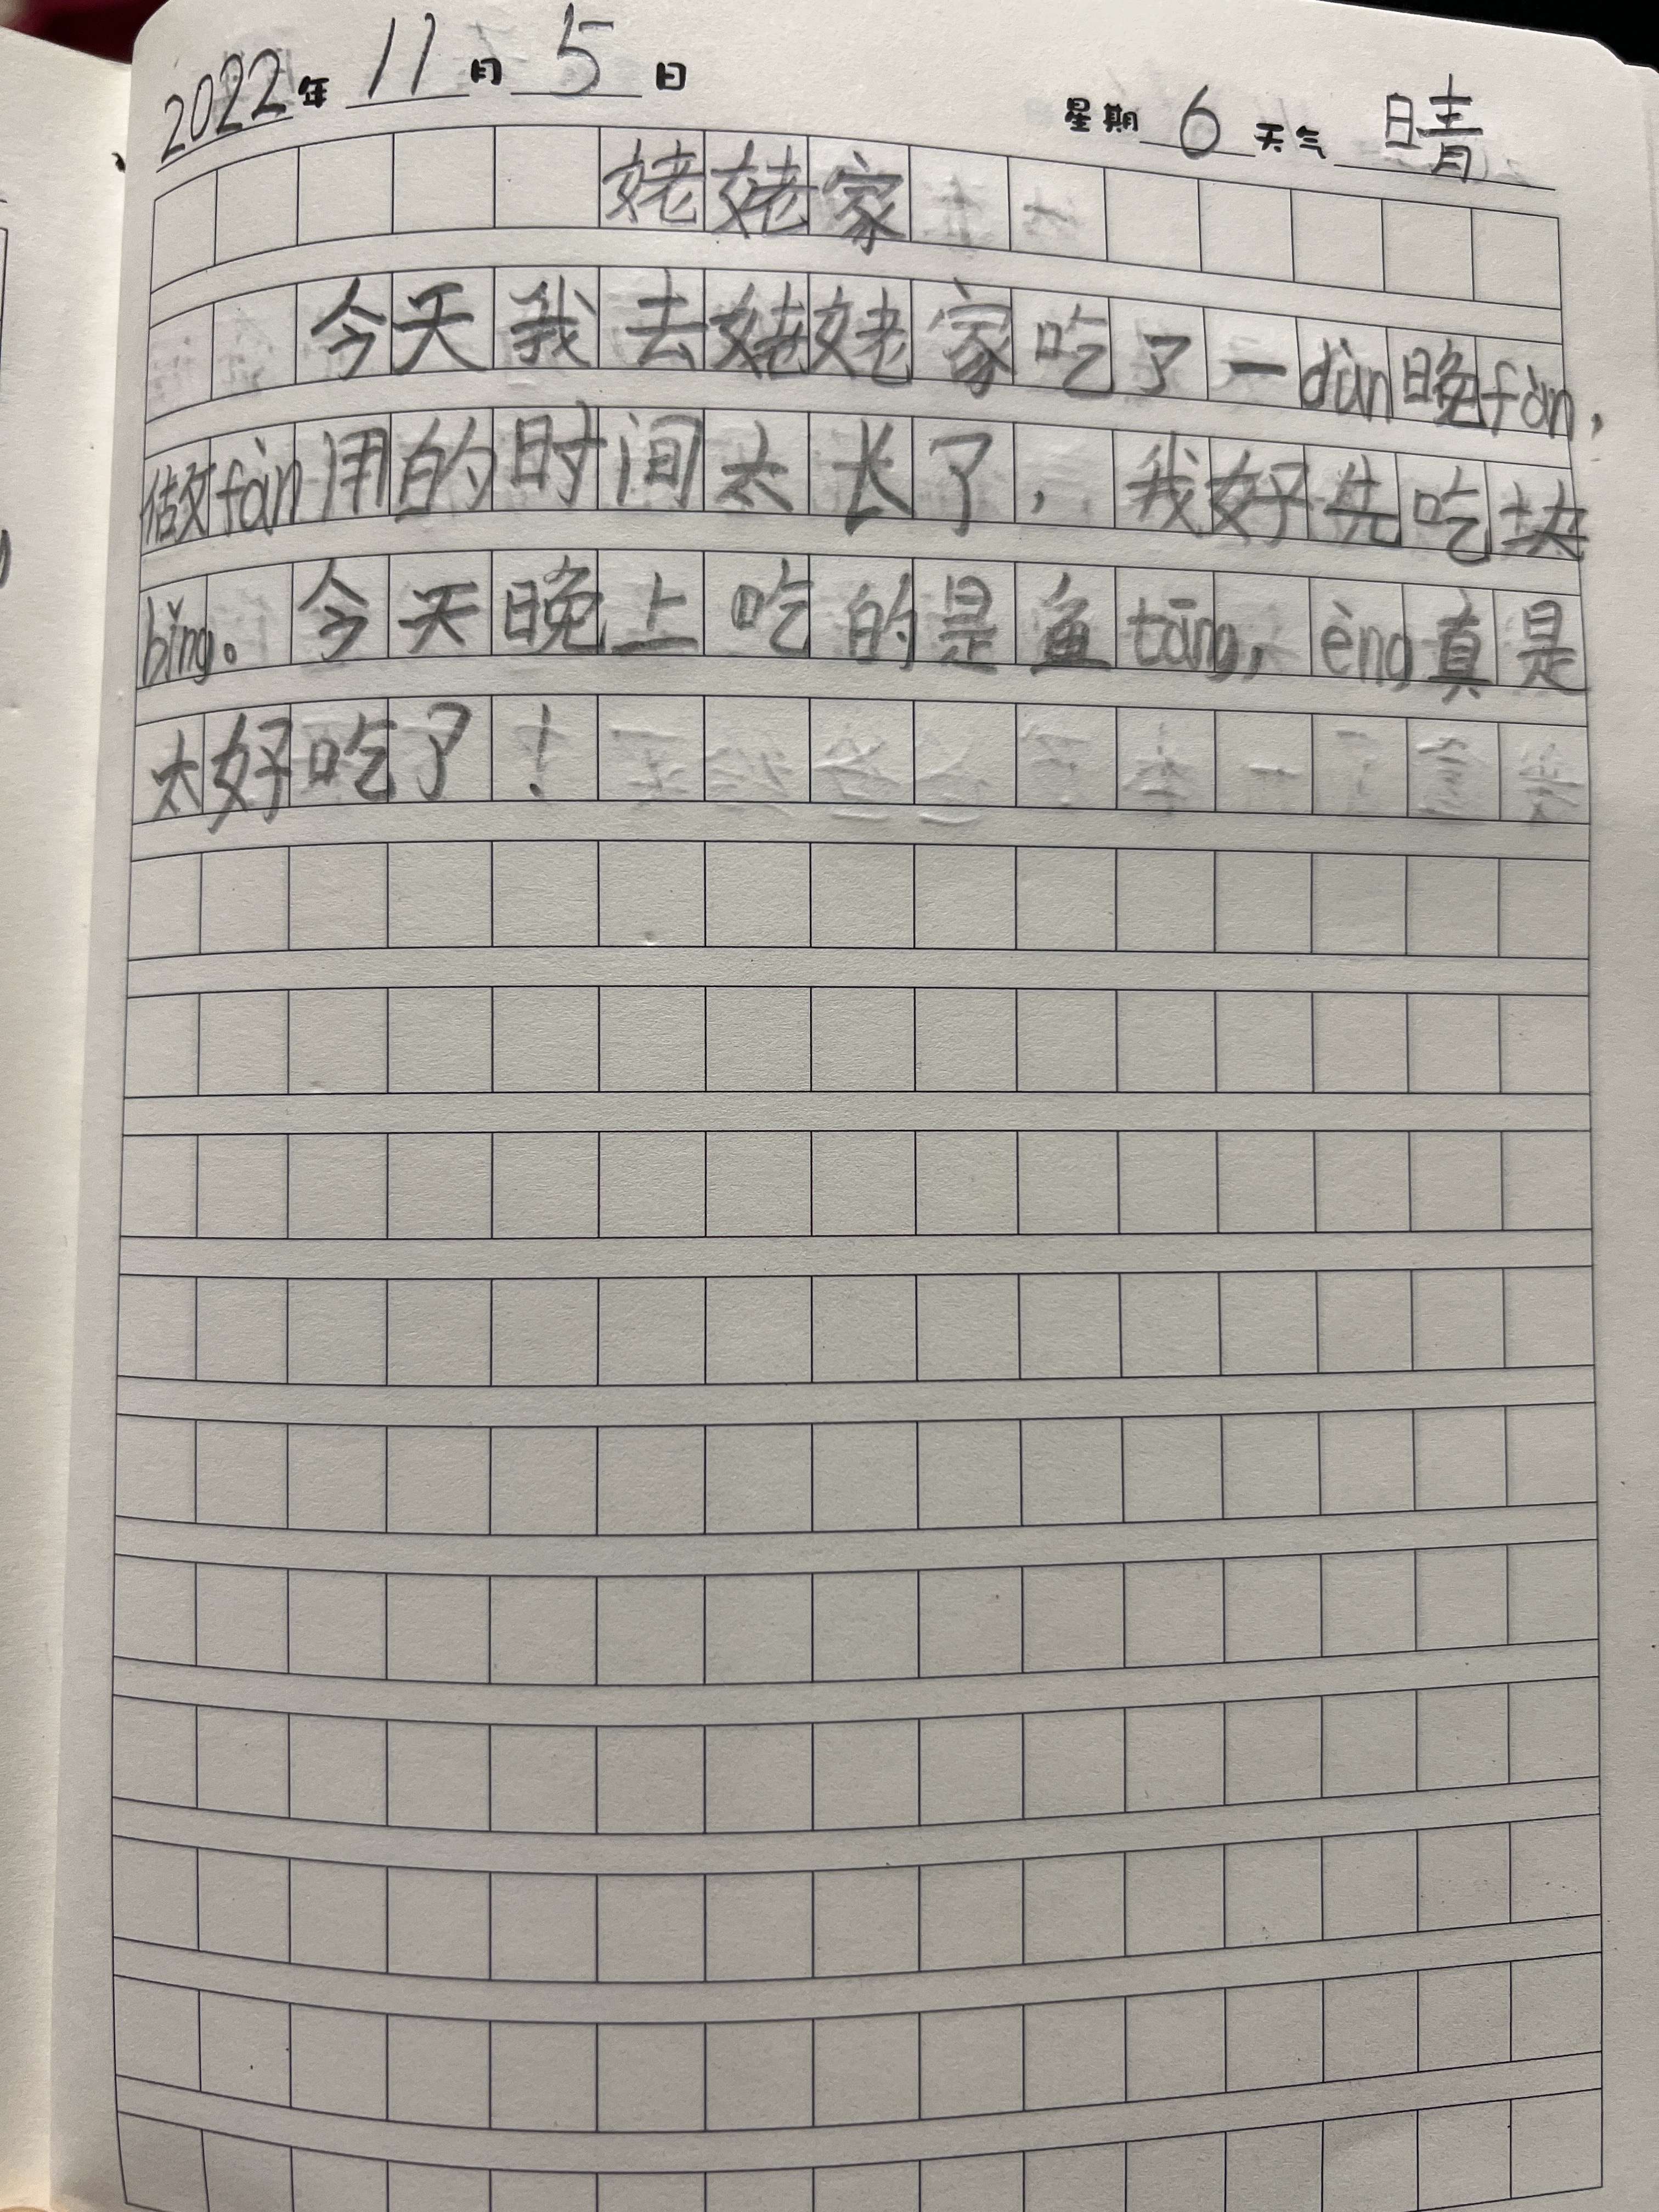 2022年 11月 5日 星期 6 天气 晴
姥姥家
今天我去姥姥家吃了一dùn晚fàn，
做fàn用的时间太长了，我好先吃块
bǐng。今天晚上吃的是鱼tāng，èng真是
太好吃了！